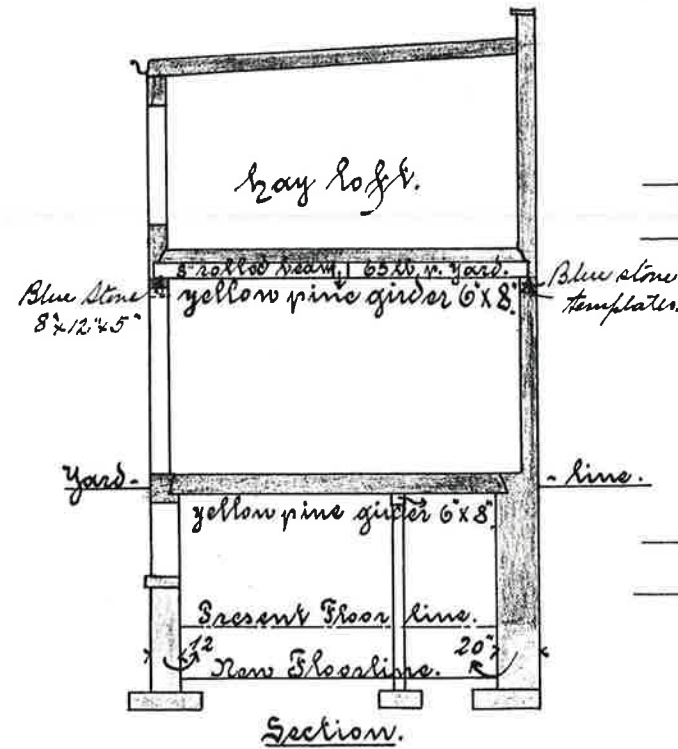 hay loft.
8" rolled beam, 65 lb p. yard.
Blue Stone
8"x12"x5"
yellow pine girder 6"x8".
Blue stone
templates.
Yard - line.
yellow pine girder 6"x8".
Present Floor line.
12 20"
New Floorline.
Section.